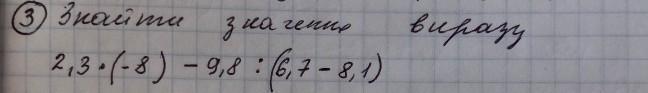 ③ Знайти значення виразу
2,3·(-8) - 9,8 : (6,7 - 8,1)